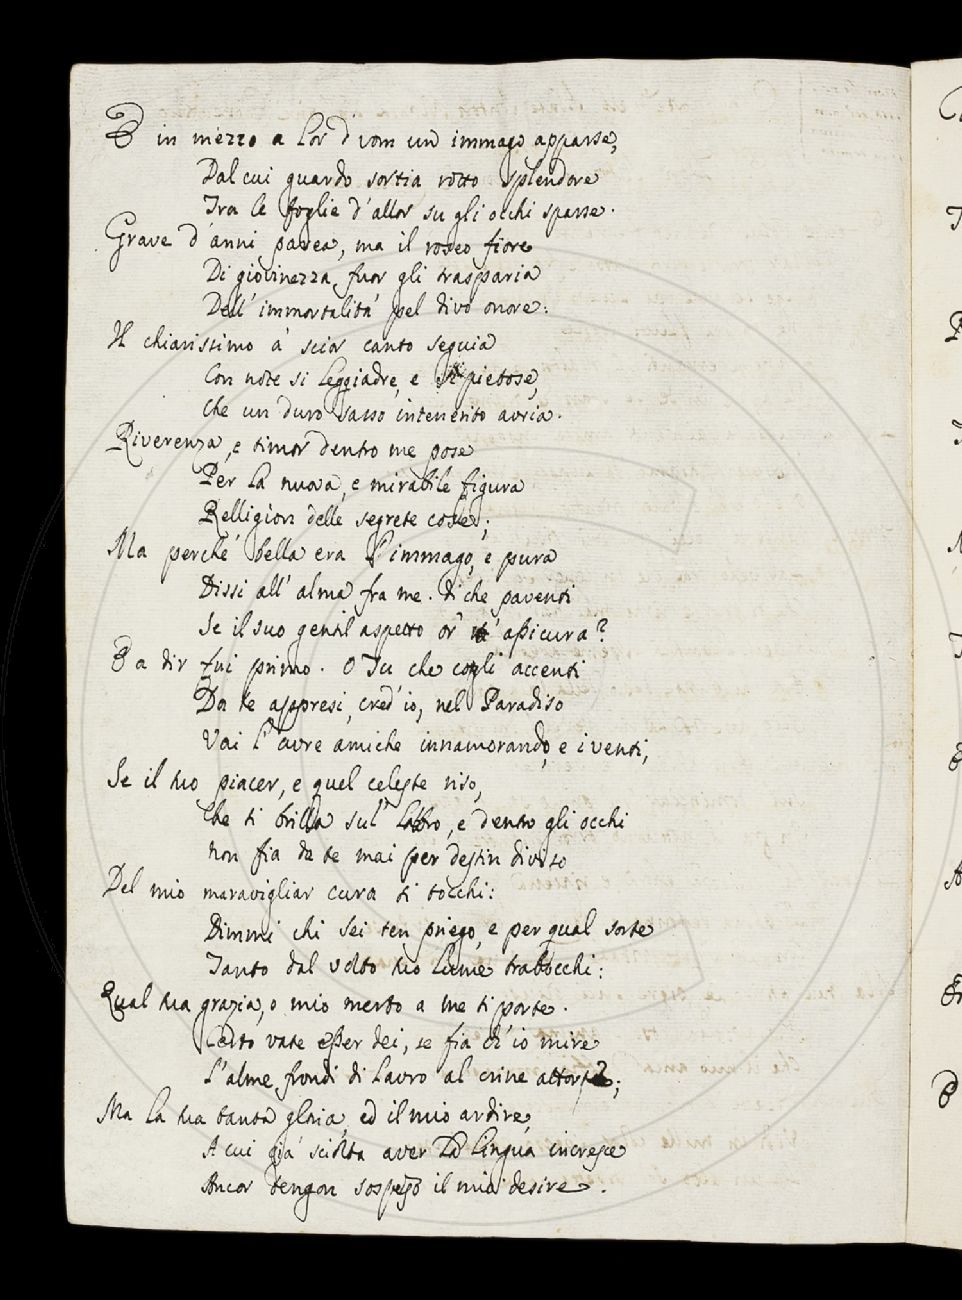 E in mezzo a lor d'uom un immago apparse,
Dal cui guardo sortia rotto splendore
Tra le foglie d'allor su gli occhi sparse.
Grave d'anni parea, ma il roseo fiore
Di giovinezza fuor gli trasparia
Dell' immortalitá pel divo onore:
Il chiarissimo á scior canto seguia
Con note si leggiadre, e si pietose,
Che un duro sasso intenerito avria.
Riverenza, e timor dentro me pose
Per la nuova, e mirabile figura
Relligion delle segrete cose;
Ma perché bella era l'immago, e pura
Dissi all' alma fra me. di che paventi
Se il suo gentil aspetto or' t' assicura?
E a dir fui primo. O Tu che cogli accenti
Da te appresi, cred' io, nel Paradiso
Vai l'aure amiche innamorando, e i venti,
Se il tuo piacer, e quel celeste riso,
Che ti brilla sul labro, e dento gli occhi
Non fia da te mai per destin diviso
Del mio maravigliar cura ti tocchi:
Dimmi chi sei ten priego, e per qual sorte
Tanto dal volto tuo lume trabocchi:
Qual tua grazia, o mio merto a me ti porte.
Certo vate esser dei, se fia ch' io mire
L'alme frondi di lauro al crine attorte;
Ma la tua tanta gloria, ed il mio ardire,
A cui giá sciolta aver la lingua incresce
Ancor tengon sospeso il mio desire.